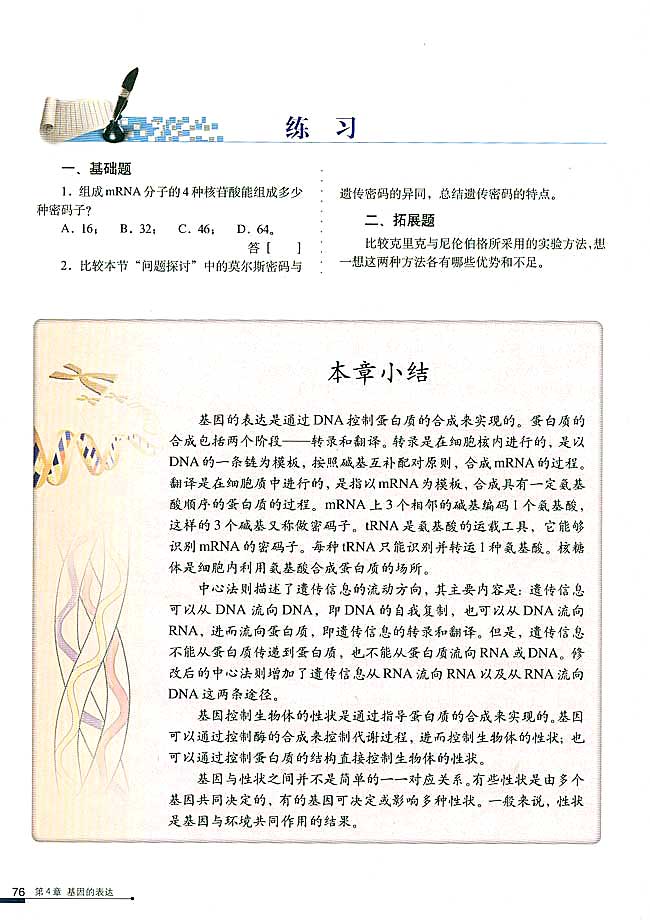 练 习
一、基础题
1．组成mRNA分子的4种核苷酸能组成多少
种密码子？
A．16； B．32； C．46； D．64。
答［ ］
2．比较本节“问题探讨”中的莫尔斯密码与
遗传密码的异同，总结遗传密码的特点。
二、拓展题
比较克里克与尼伦伯格所采用的实验方法，想
一想这两种方法各有哪些优势和不足。
本章小结
基因的表达是通过DNA控制蛋白质的合成来实现的。蛋白质的
合成包括两个阶段——转录和翻译。转录是在细胞核内进行的，是以
DNA的一条链为模板，按照碱基互补配对原则，合成mRNA的过程。
翻译是在细胞质中进行的，是指以mRNA为模板，合成具有一定氨基
酸顺序的蛋白质的过程。mRNA上3个相邻的碱基编码1个氨基酸，
这样的3个碱基又称做密码子。tRNA是氨基酸的运载工具，它能够
识别mRNA的密码子。每种tRNA只能识别并转运1种氨基酸。核糖
体是细胞内利用氨基酸合成蛋白质的场所。
中心法则描述了遗传信息的流动方向，其主要内容是：遗传信息
可以从DNA流向DNA，即DNA的自我复制，也可以从DNA流向
RNA，进而流向蛋白质，即遗传信息的转录和翻译。但是，遗传信息
不能从蛋白质传递到蛋白质，也不能从蛋白质流向RNA或DNA。修
改后的中心法则增加了遗传信息从RNA流向RNA以及从RNA流向
DNA这两条途径。
基因控制生物体的性状是通过指导蛋白质的合成来实现的。基因
可以通过控制酶的合成来控制代谢过程，进而控制生物体的性状；也
可以通过控制蛋白质的结构直接控制生物体的性状。
基因与性状之间并不是简单的一一对应关系。有些性状是由多个
基因共同决定的，有的基因可决定或影响多种性状。一般来说，性状
是基因与环境共同作用的结果。
76 第4章 基因的表达